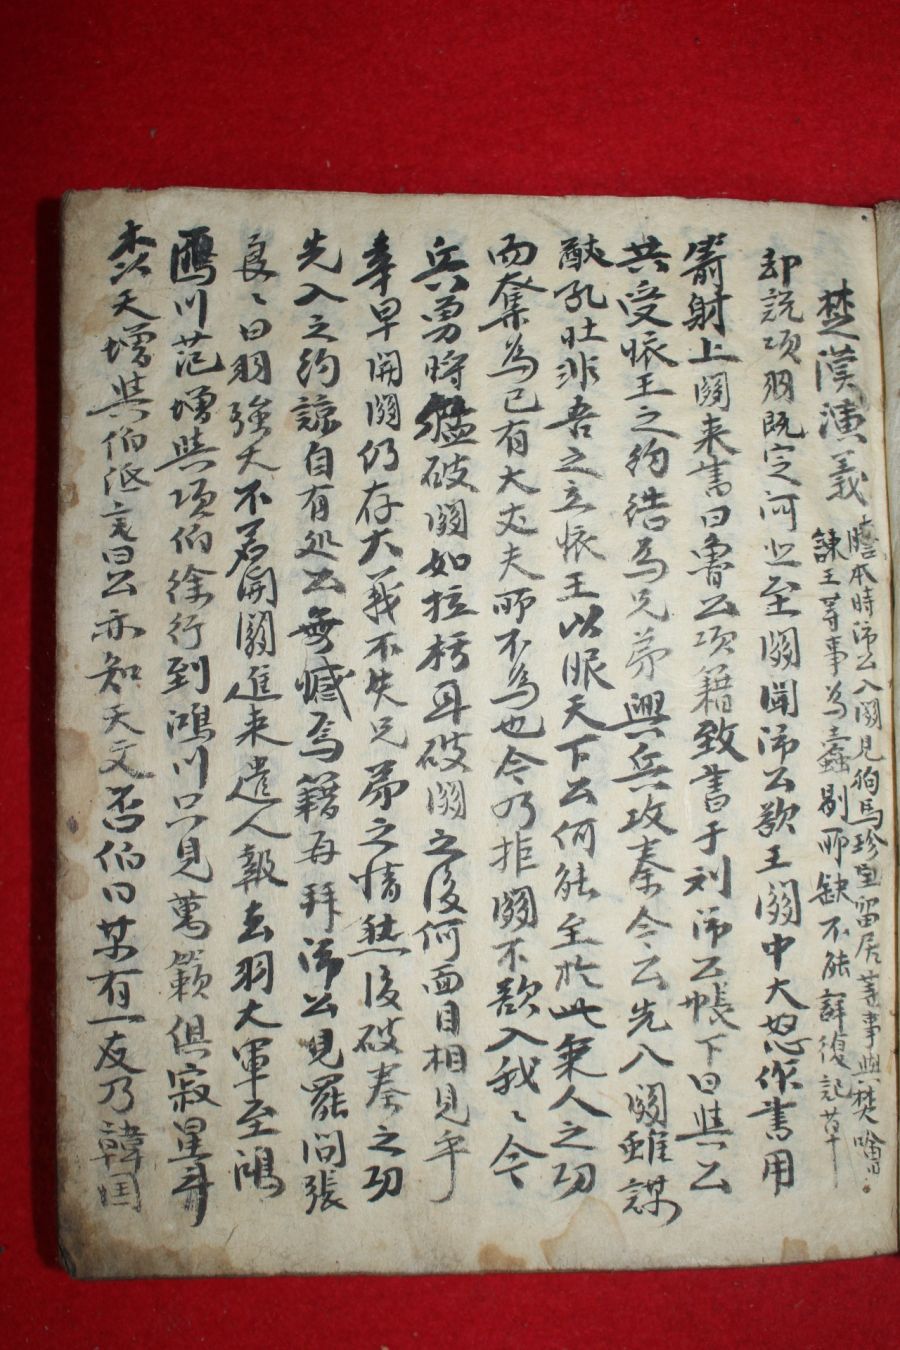 楚漢演義
謄本時沛公入關見狗馬珍宝留居等事與樊噲
諫王等事為蠹剝所缺不能詳復記草
却說項羽既定河北至關聞沛公欲王關中大怒作書用
箭射上關来書曰魯公項籍致書于刘沛公帳下曰與公
共受懷王之約結為兄弟興兵攻秦今公先入關雖謀
猷孔壯非吾之立懷王以服天下公何能至於此乗人之功
而奪為已有大丈夫所不為也今乃拒關不欲入我〻今
兵勇將猛破關如拉朽耳破關之後何面目相見乎
幸早開關仍存大義不失兄弟之情然後破秦之功
先入之約諒自有処公無憾焉籍再拜沛公見罷问張
良〻曰羽強大不若開關進来遣人報去羽大軍至鴻
鴈川范增與項伯徐行到鴻川只見萬籟俱寂星斗
天增與伯低言曰公亦知天文否伯曰某有一友乃韓国